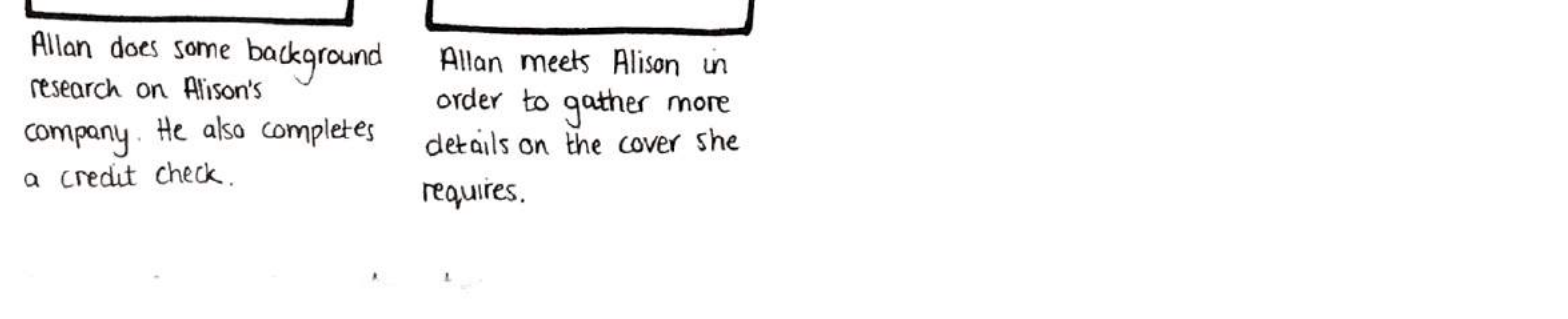 Allan does some background
research on Alison's
company. He also completes
a credit check.
Allan meets Alison in
order to gather more
details on the cover she
requires.